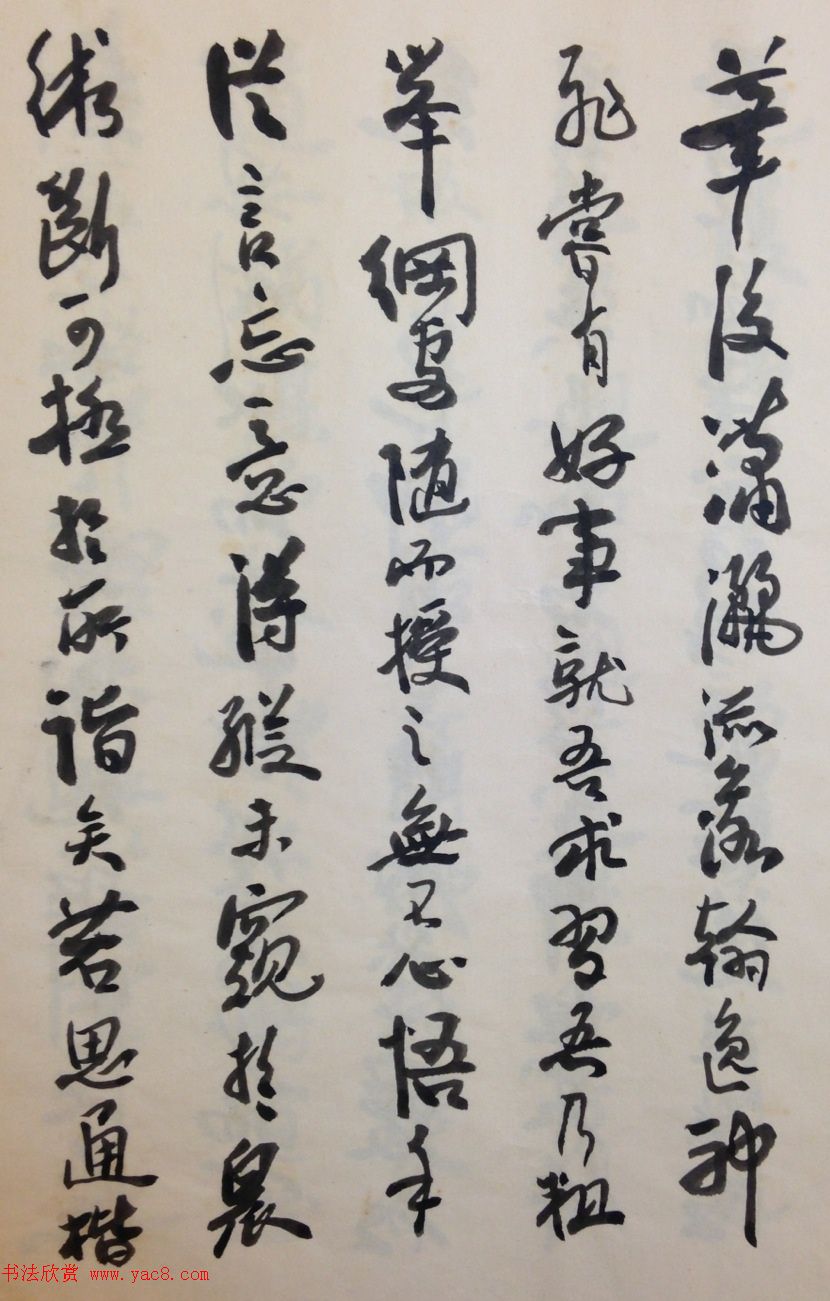 筆後瀟灑流落翰逸神
飛嘗有好事就吾求習吾乃粗
舉綱要隨而授之無不心悟手
從言忘意得縱未窺於衆
術斷可極於所詣矣若思通楷
书法欣赏 www.yac8.com